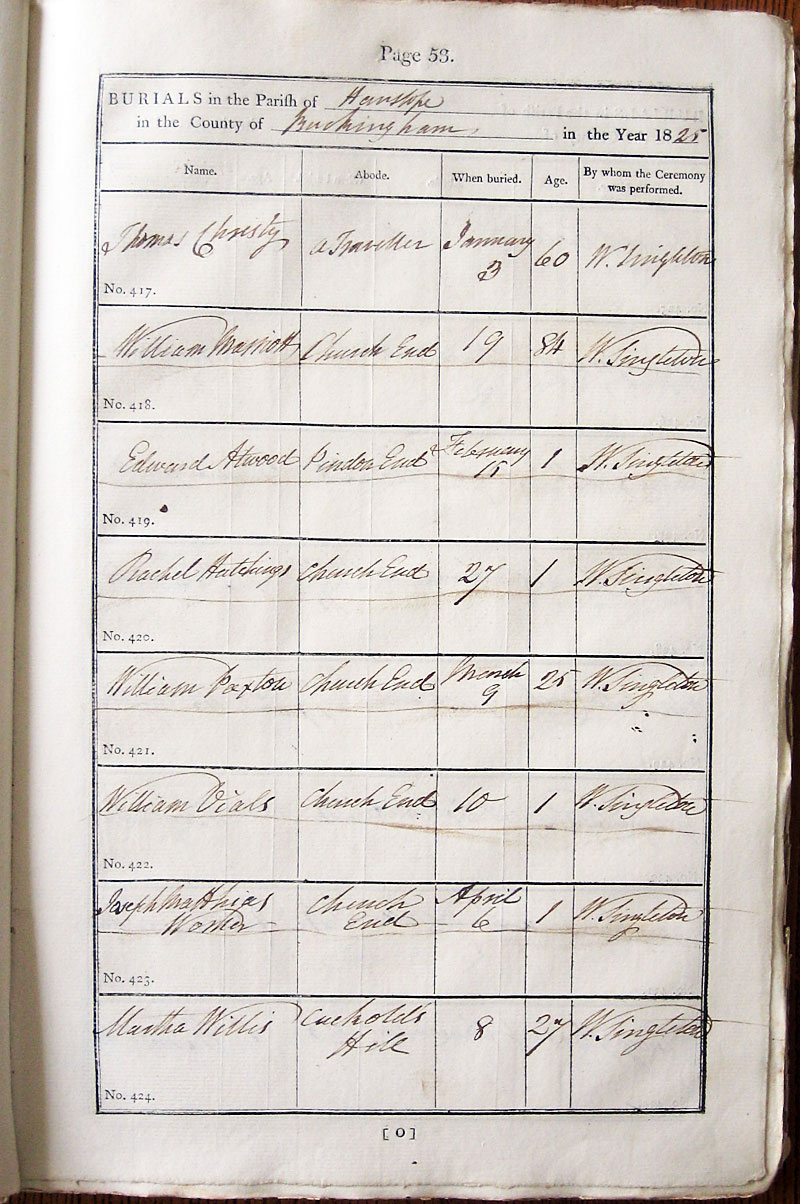 Page 53.
BURIALS in the Parish of Hanslope
in the County of Buckingham in the Year 1825
Name. Abode. When buried. Age. By whom the Ceremony was performed.
Thomas Christy a Traveller January 3 60 W. Singleton
No. 417.
William Marriott Church End 19 84 W. Singleton
No. 418.
Edward Atwood Pindon End February 15 1 W. Singleton
No. 419.
Rachel Hutchings Church End 27 1 W. Singleton
No. 420.
William Paxton Church End March 9 25 W. Singleton
No. 421.
William Vials Church End 10 1 W. Singleton
No. 422.
Joseph Matthias Church April 1 W. Singleton
End 6
No. 423.
Martha Willis Cuckold's 8 27 W. Singleton
Hill
No. 424.
[ O ]